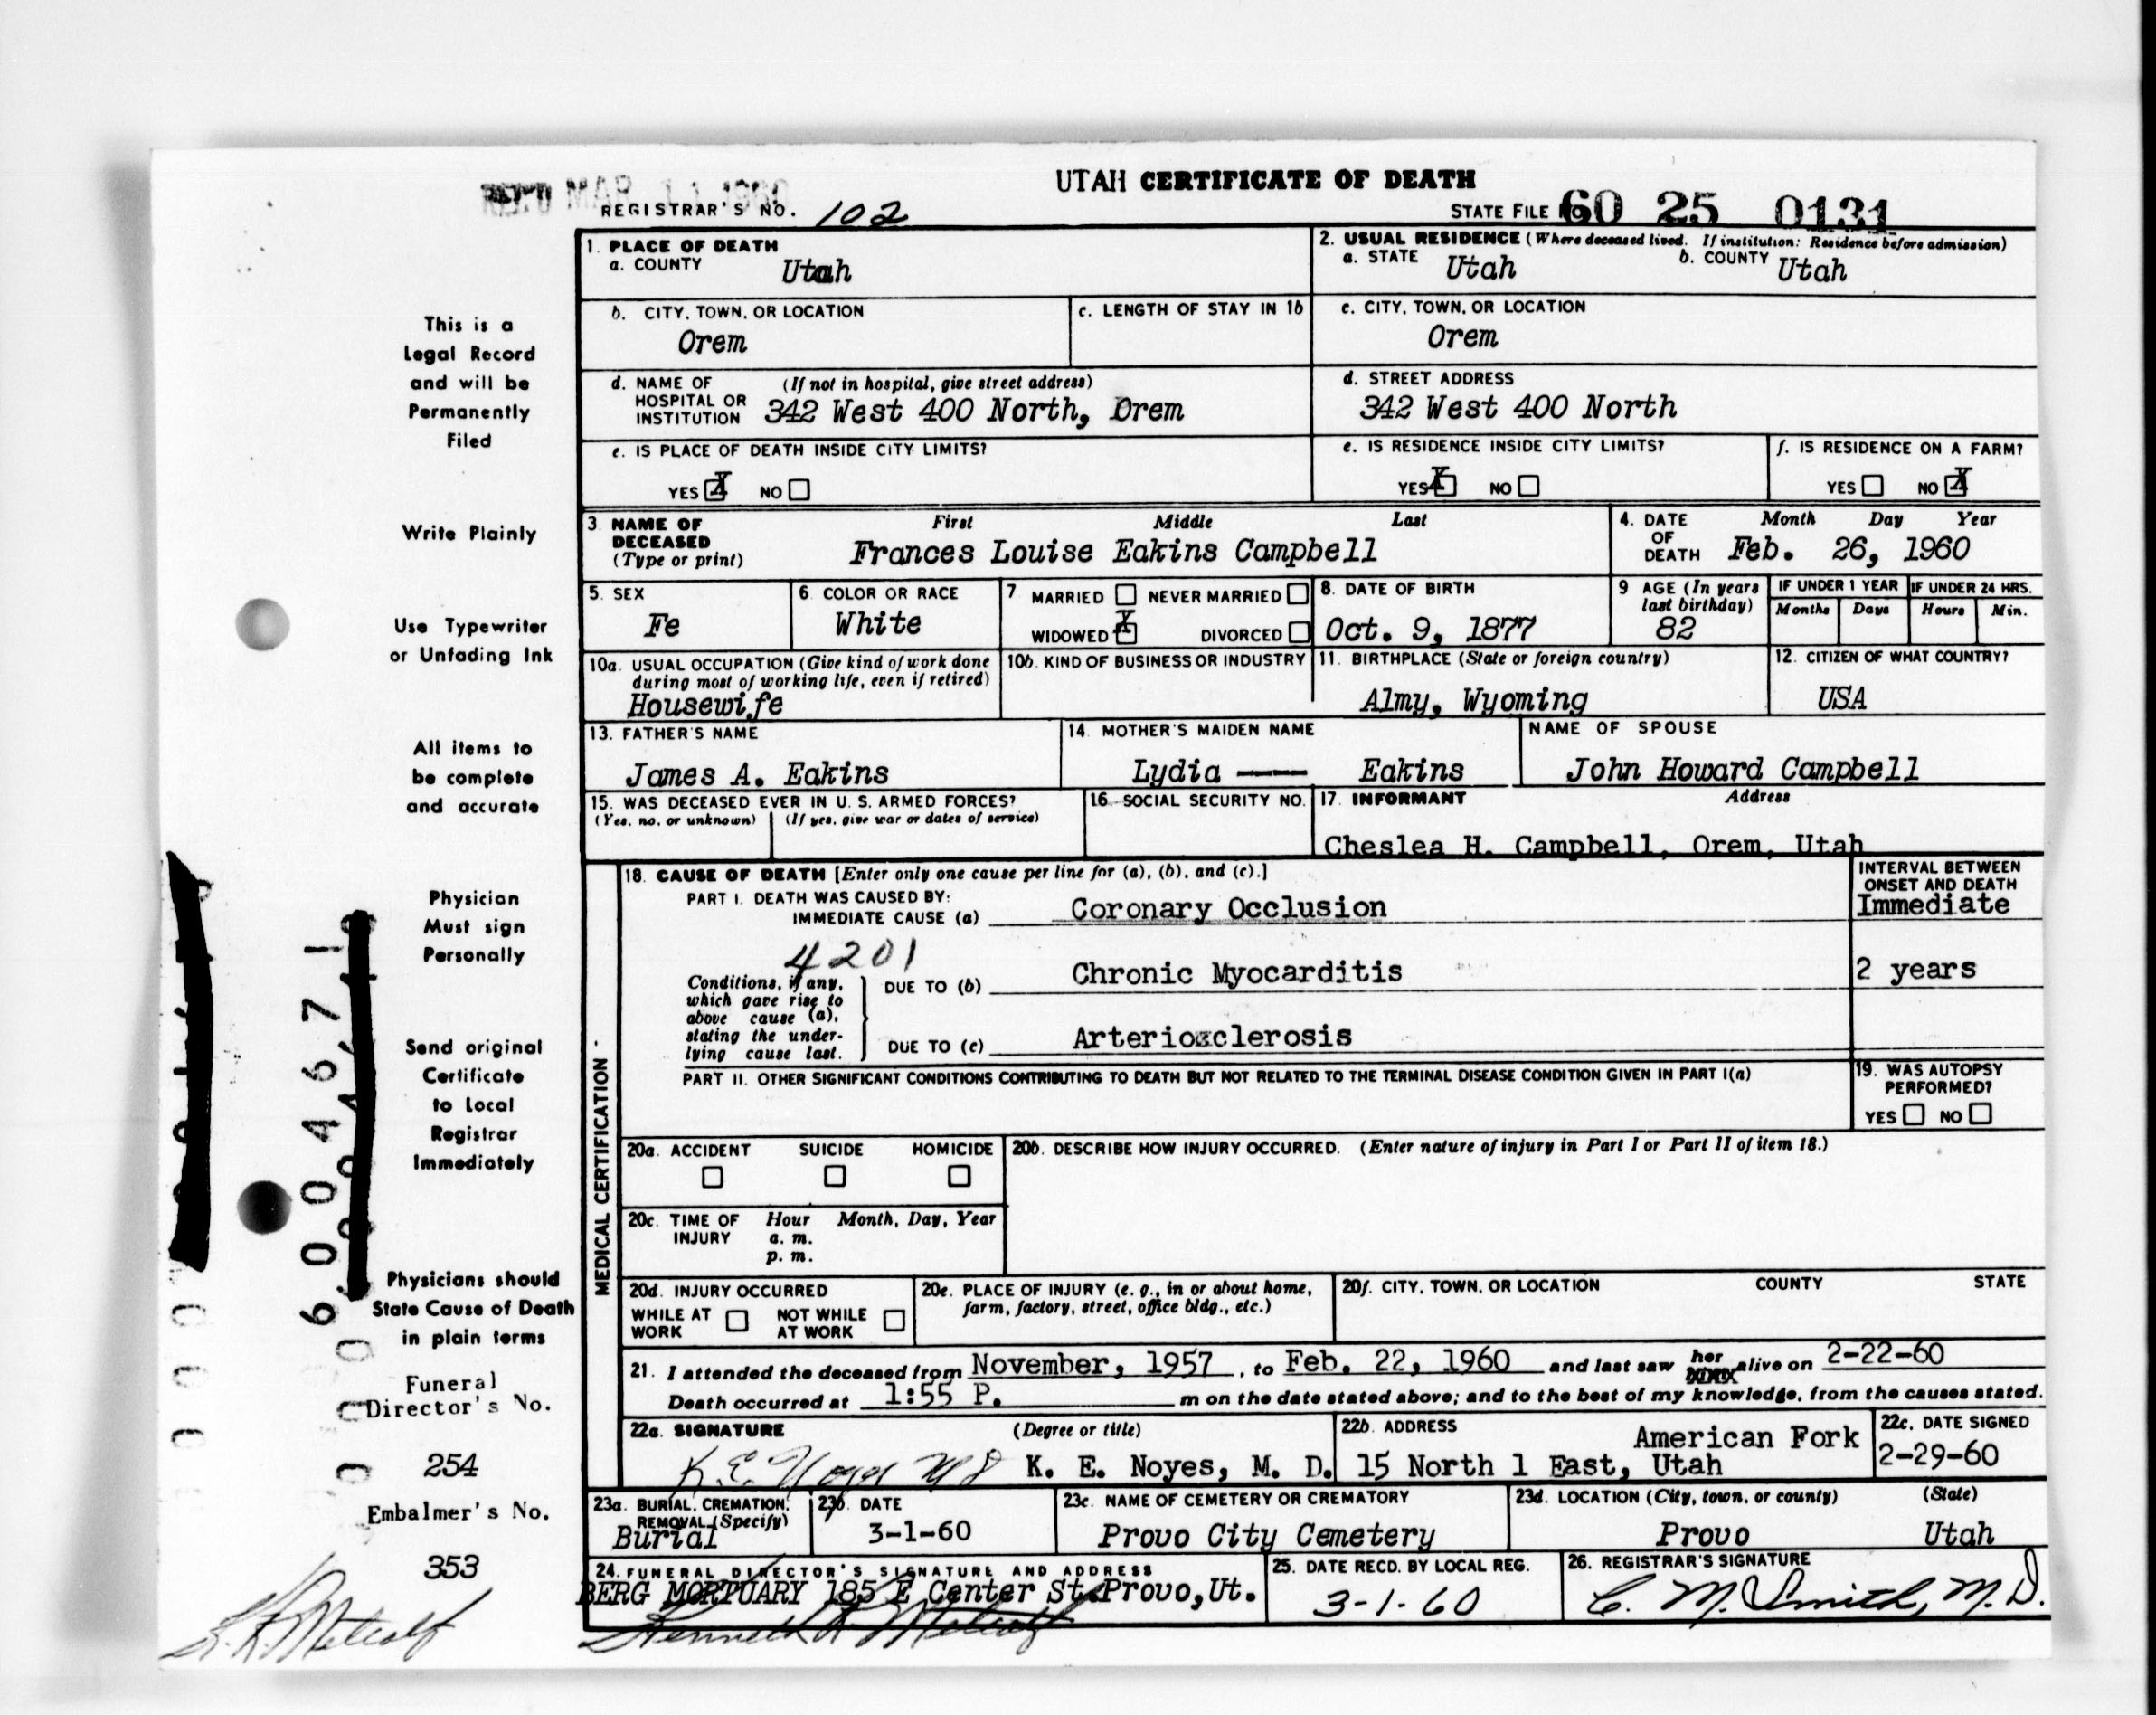 UTAH CERTIFICATE OF DEATH
REC'D MAR 11 1960
REGISTRAR'S NO. 102
STATE FILE NO. 60 25 0131
1. PLACE OF DEATH
a. COUNTY Utah
2. USUAL RESIDENCE (Where deceased lived. If institution: Residence before admission)
a. STATE Utah b. COUNTY Utah
b. CITY, TOWN, OR LOCATION
Orem
c. LENGTH OF STAY IN 1b
c. CITY, TOWN, OR LOCATION
Orem
d. NAME OF HOSPITAL OR INSTITUTION (If not in hospital, give street address)
342 West 400 North, Orem
d. STREET ADDRESS
342 West 400 North
e. IS PLACE OF DEATH INSIDE CITY LIMITS?
YES X NO
e. IS RESIDENCE INSIDE CITY LIMITS?
YES X NO
f. IS RESIDENCE ON A FARM?
YES NO X
3. NAME OF DECEASED (Type or print) First Middle Last
Frances Louise Eakins Campbell
4. DATE OF DEATH Month Day Year
Feb. 26, 1960
5. SEX
Fe
6. COLOR OR RACE
White
7. MARRIED NEVER MARRIED
WIDOWED X DIVORCED
8. DATE OF BIRTH
Oct. 9, 1877
9 AGE (In years last birthday)
82
IF UNDER 1 YEAR
Months Days
IF UNDER 24 HRS.
Hours Min.
10a. USUAL OCCUPATION (Give kind of work done during most of working life, even if retired)
Housewife
10b. KIND OF BUSINESS OR INDUSTRY
11. BIRTHPLACE (State or foreign country)
Almy, Wyoming
12. CITIZEN OF WHAT COUNTRY?
USA
13. FATHER'S NAME
James A. Eakins
14. MOTHER'S MAIDEN NAME
Lydia —— Eakins
NAME OF SPOUSE
John Howard Campbell
15. WAS DECEASED EVER IN U. S. ARMED FORCES?
(Yes, no, or unknown) (If yes, give war or dates of service)
16. SOCIAL SECURITY NO.
17. INFORMANT Address
Cheslea H. Campbell, Orem, Utah
MEDICAL CERTIFICATION
18. CAUSE OF DEATH [Enter only one cause per line for (a), (b), and (c).]
INTERVAL BETWEEN ONSET AND DEATH
PART I. DEATH WAS CAUSED BY:
IMMEDIATE CAUSE (a) Coronary Occlusion Immediate
4201
Conditions, if any, which gave rise to above cause (a), stating the underlying cause last.
DUE TO (b) Chronic Myocarditis 2 years
DUE TO (c) Arteriosclerosis
PART II. OTHER SIGNIFICANT CONDITIONS CONTRIBUTING TO DEATH BUT NOT RELATED TO THE TERMINAL DISEASE CONDITION GIVEN IN PART I(a)
19. WAS AUTOPSY PERFORMED?
YES NO
20a. ACCIDENT SUICIDE HOMICIDE
20b. DESCRIBE HOW INJURY OCCURRED. (Enter nature of injury in Part I or Part II of item 18.)
20c. TIME OF INJURY Hour Month, Day, Year
a. m.
p. m.
20d. INJURY OCCURRED
WHILE AT WORK NOT WHILE AT WORK
20e. PLACE OF INJURY (e. g., in or about home, farm, factory, street, office bldg., etc.)
20f. CITY, TOWN, OR LOCATION COUNTY STATE
21. I attended the deceased from November, 1957, to Feb. 22, 1960 and last saw her alive on 2-22-60
Death occurred at 1:55 P. m on the date stated above; and to the best of my knowledge, from the causes stated.
22a. SIGNATURE (Degree or title)
K. E. Noyes MD K. E. Noyes, M. D.
22b. ADDRESS
American Fork
15 North 1 East, Utah
22c. DATE SIGNED
2-29-60
23a. BURIAL, CREMATION, REMOVAL (Specify)
Burial
23b. DATE
3-1-60
23c. NAME OF CEMETERY OR CREMATORY
Provo City Cemetery
23d. LOCATION (City, town, or county) (State)
Provo Utah
24. FUNERAL DIRECTOR'S SIGNATURE AND ADDRESS
BERG MORTUARY 185 E Center St. Provo, Ut.
Kenneth R Metcalf
25. DATE RECD. BY LOCAL REG.
3-1-60
26. REGISTRAR'S SIGNATURE
C. M. Smith, M.D.
This is a
Legal Record
and will be
Permanently
Filed
Write Plainly
Use Typewriter
or Unfading Ink
All items to
be complete
and accurate
Physician
Must sign
Personally
Send original
Certificate
to Local
Registrar
Immediately
Physicians should
State Cause of Death
in plain terms
Funeral
Director's No.
254
Embalmer's No.
353
Metcalf